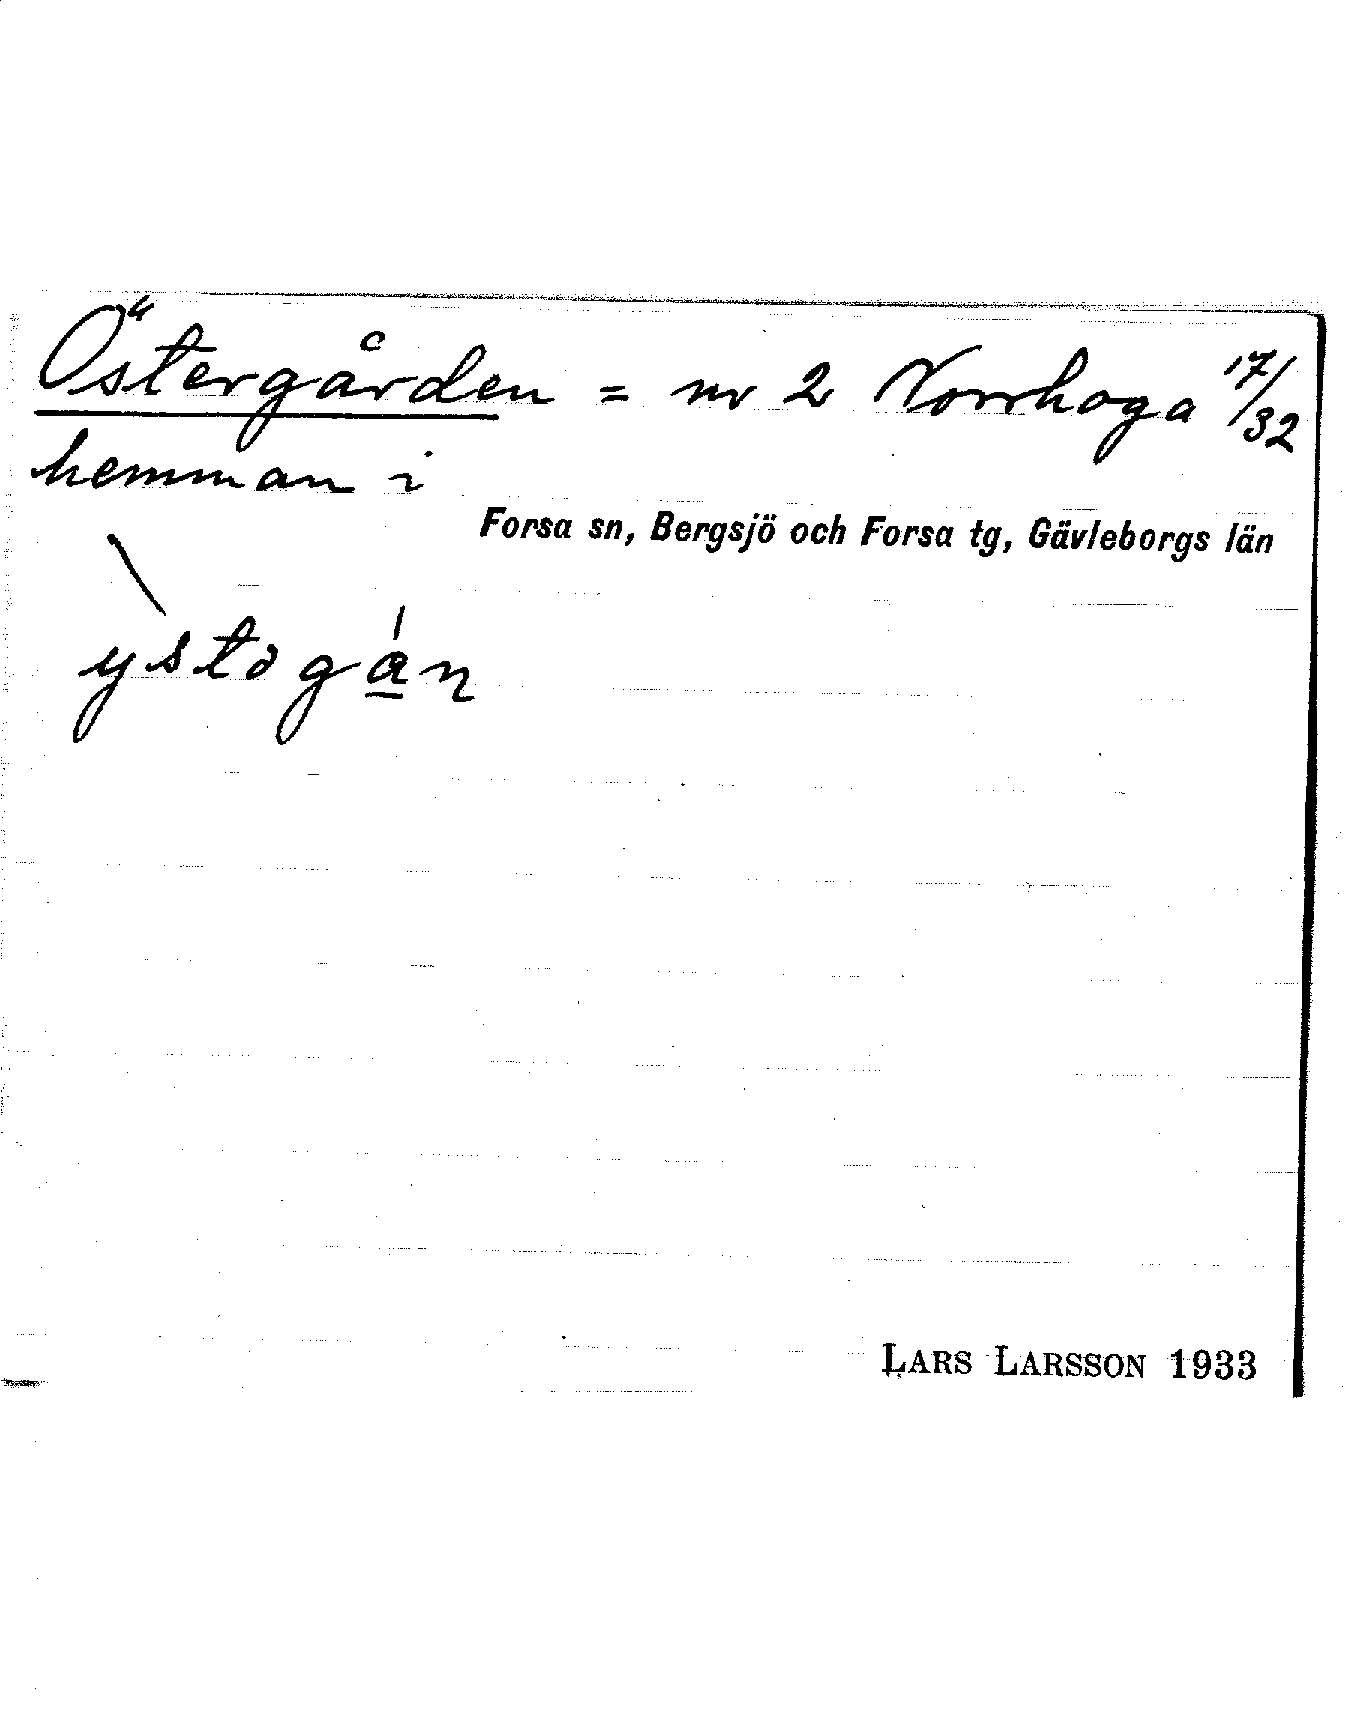 Östergården = nr 2 Norrhoga 17/32
hemman i
Forsa sn, Bergsjö och Forsa tg, Gävleborgs län
ỳstǝgán
LARS LARSSON 1933